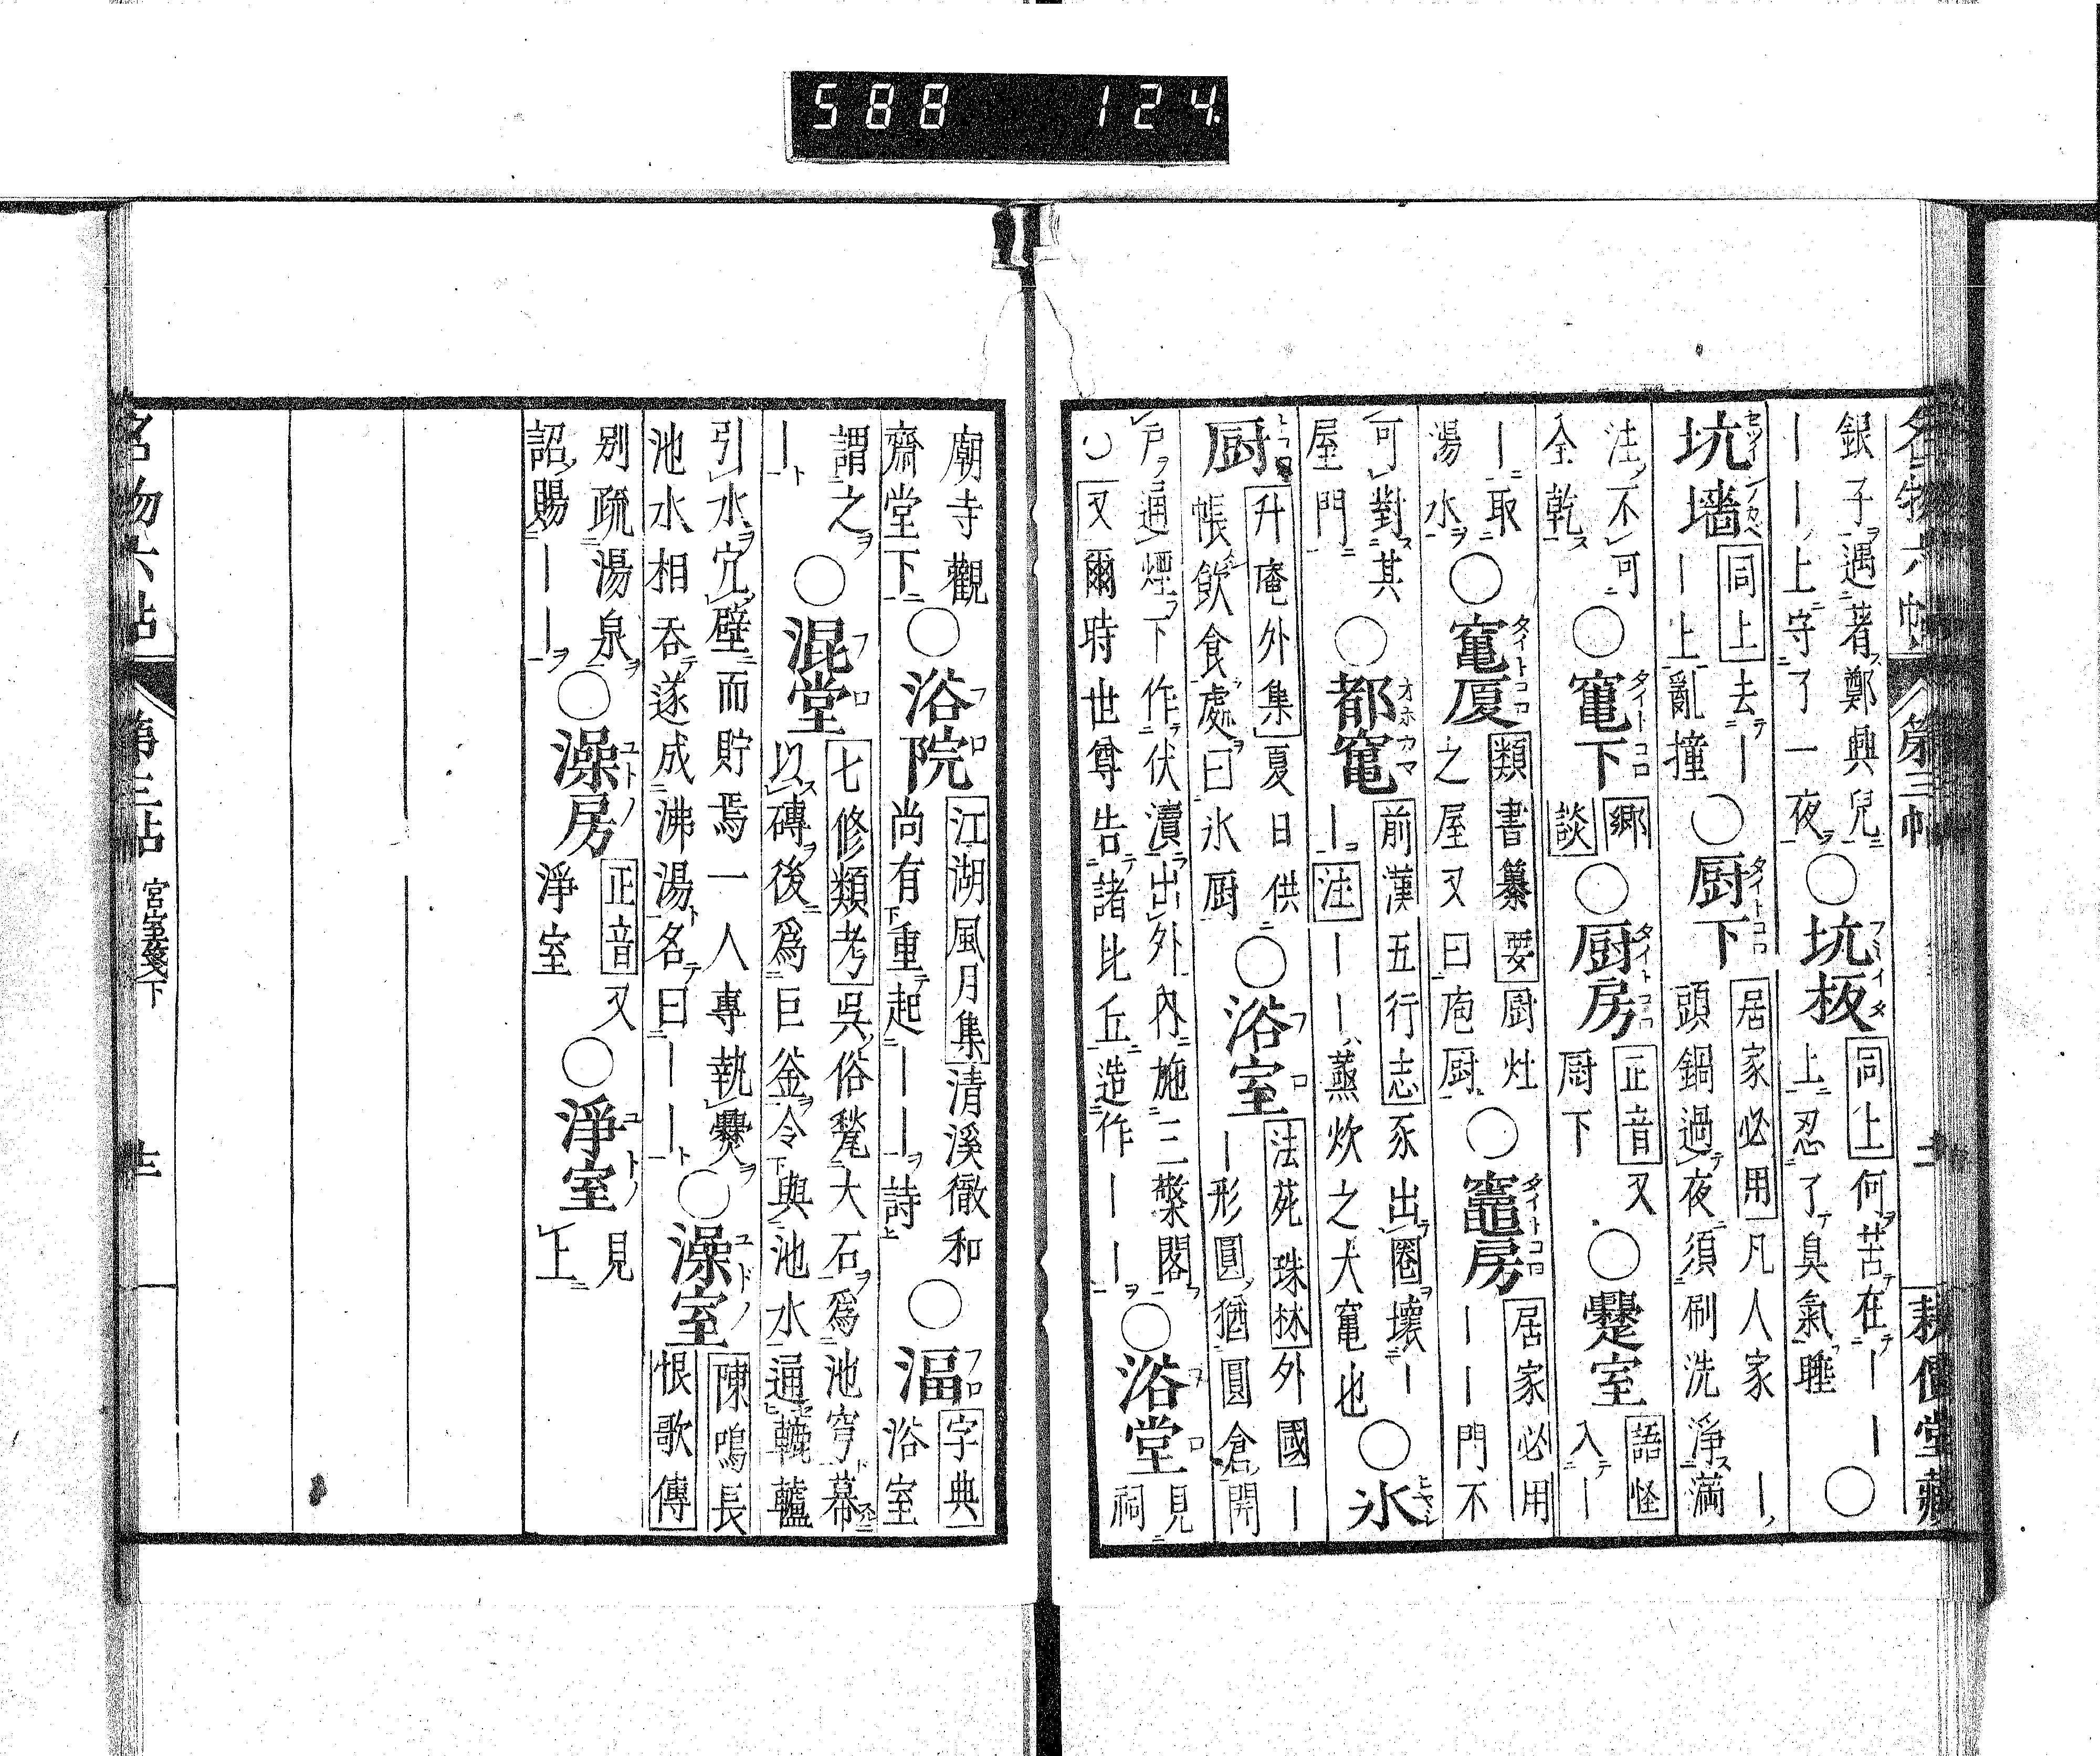 588 124.
名物六帖 第三帖 耕價堂藏
銀子遇著鄭興兒
｜｜上守了一夜○坑板 同上 何苦在｜｜
上忍了臭氣睡○
坑墻 同上 去｜
｜上亂撞○厨下 居家必用 凡人家｜
頭鍋過夜須刷洗淨滿
注不可
全乾○竃下 鄉談○厨房 正音 又
厨下○爨室 語怪
入｜
｜取
湯水○竃厦 類書纂要 厨灶
之屋又曰庖厨○竈房 居家必用
｜｜門不
可對其
屋門○都竃 前漢五行志 豕出圈壞｜
｜注｜｜蒸炊之大竃也○氷
厨 升庵外集 夏日供
帳飲食處曰氷厨○浴室 法苑珠林 外國｜
｜形圓猶圓倉開
戶通煙下作伏瀆出外內施三槃閣
○又爾時世尊告諸比丘造作｜｜○浴堂 見
祠
廟寺觀
齋堂下○浴院 江湖風月集 清溪徹和
尚有重起｜｜詩○湢 字典
浴室
謂之
｜○混堂 七修類考 吳俗甃大石爲池穹幕
以磚後爲巨釜令與池水通轆轤
引水穴壁而貯焉一人專執爨
池水相吞遂成沸湯名曰｜｜○澡室 陳鳴長
恨歌傳
別疏湯泉
詔賜｜｜○澡房 正音 又
淨室○淨室 見
上
名物六帖 第三帖 宮室箋下